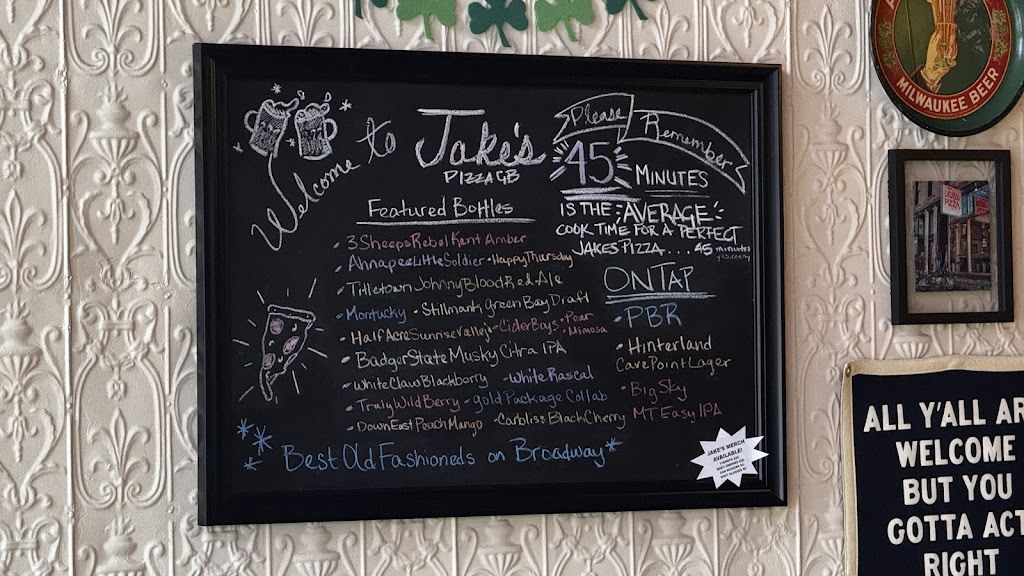 Welcome to Jake's
PIZZA GB
Please Remember
45 MINUTES
IS THE AVERAGE
COOK TIME FOR A PERFECT
JAKES PIZZA....45 minutes
yes, really
Featured Bottles
- 3 Sheeps Rebel Kent Amber
- Ahnapee Little Soldier - Happy Thursday
- Titletown Johnny Blood Red Ale
- Montucky - Stillmank Green Bay Draft
- Half Acre Sunrise Vallejo - Cider Boys - Pear
- Mimosa
- Badger State Musky Citra IPA
- White Claw Blackberry - White Rascal
- Truly Wild Berry - gold Package Collab
- Down East Peach Mango - Carbliss Black Cherry
ON TAP
- PBR
- Hinterland
Cave Point Lager
- Big Sky
MT Easy IPA
Best Old Fashioneds on Broadway
JAKE'S MERCH
AVAILABLE!
MILWAUKEE BEER
ALL Y'ALL AR
WELCOME
BUT YOU
GOTTA ACT
RIGHT